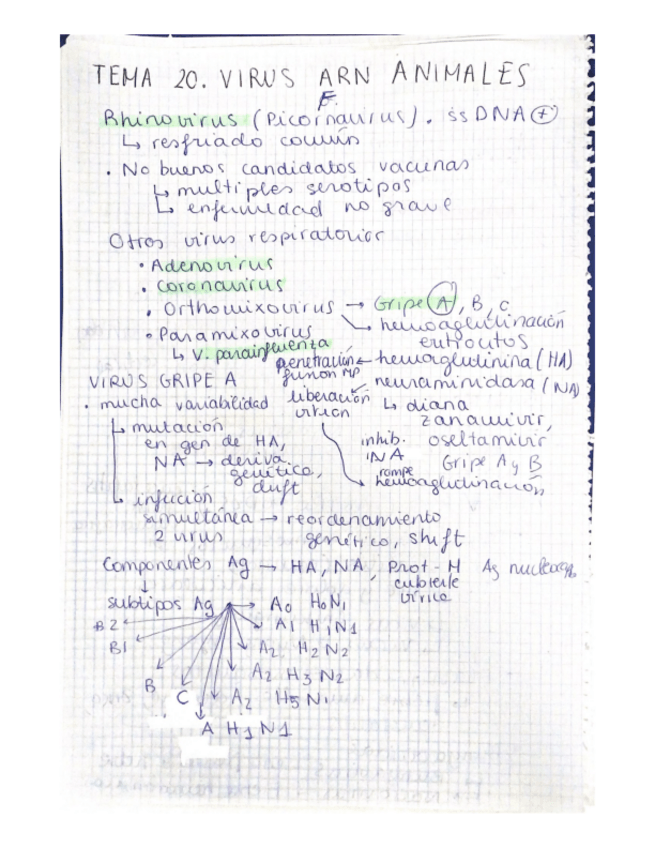 TEMA 20. VIRUS ARN ANIMALES
F.
Rhinovirus (Picornavirus). ssDNA (+)
↳ resfriado común
· No buenos candidatos vacunas
↳ multiples serotipos
↳ enfermedad no grave
Otros virus respiratorios
· Adenovirus
· Coronavirus
· Orthomixovirus → Gripe A, B, C
↳ hemoaglutinación eritrocitos
· Paramixovirus
↳ V. parainfluenza
penetración fusión MP ← hemaglutinina (HA)
liberación virion ↙ neuraminidasa (NA)
↳ diana zanamivir, oseltamivir
inhib. NA
Gripe A y B
rompe hemoaglutinación
VIRUS GRIPE A
· mucha variabilidad
↳ mutación
en gen de HA,
NA → deriva
genética,
drift
↳ infección
simultánea → reordenamiento
2 virus genético, shift
Componentes Ag → HA, NA, Prot-M
cubierta
vírica
Ag
↓
subtipos Ag → A0 H0N1
B2
A1 H1N1
B1
A2 H2N2
A2 H3N2
B
C
A2 H5N1
A H1N1